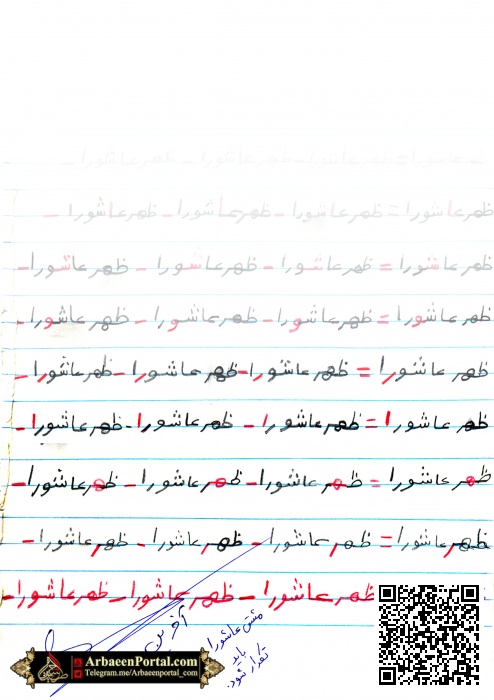 ظهر عاشورا = ظهر عاشورا - ظهر عاشورا - ظهر عاشورا -
ظهر عاشورا = ظهر عاشورا - ظهر عاشورا - ظهر عاشورا -
ظهر عاشورا = ظهر عاشورا - ظهر عاشورا - ظهر عاشورا -
ظهر عاشورا = ظهر عاشورا - ظهر عاشورا - ظهر عاشورا -
ظهر عاشورا = ظهر عاشورا - ظهر عاشورا - ظهر عاشورا -
ظهر عاشورا = ظهر عاشورا - ظهر عاشورا - ظهر عاشورا -
ظهر عاشورا = ظهر عاشورا - ظهر عاشورا - ظهر عاشورا -
ظهر عاشورا = ظهر عاشورا - ظهر عاشورا - ظهر عاشورا -
ظهر عاشورا - ظهر عاشورا - ظهر عاشورا -
آفرین
مشق عاشورا
باید
تکرار شود.
ArbaeenPortal.com
Telegram.me/Arbaeenportal.com